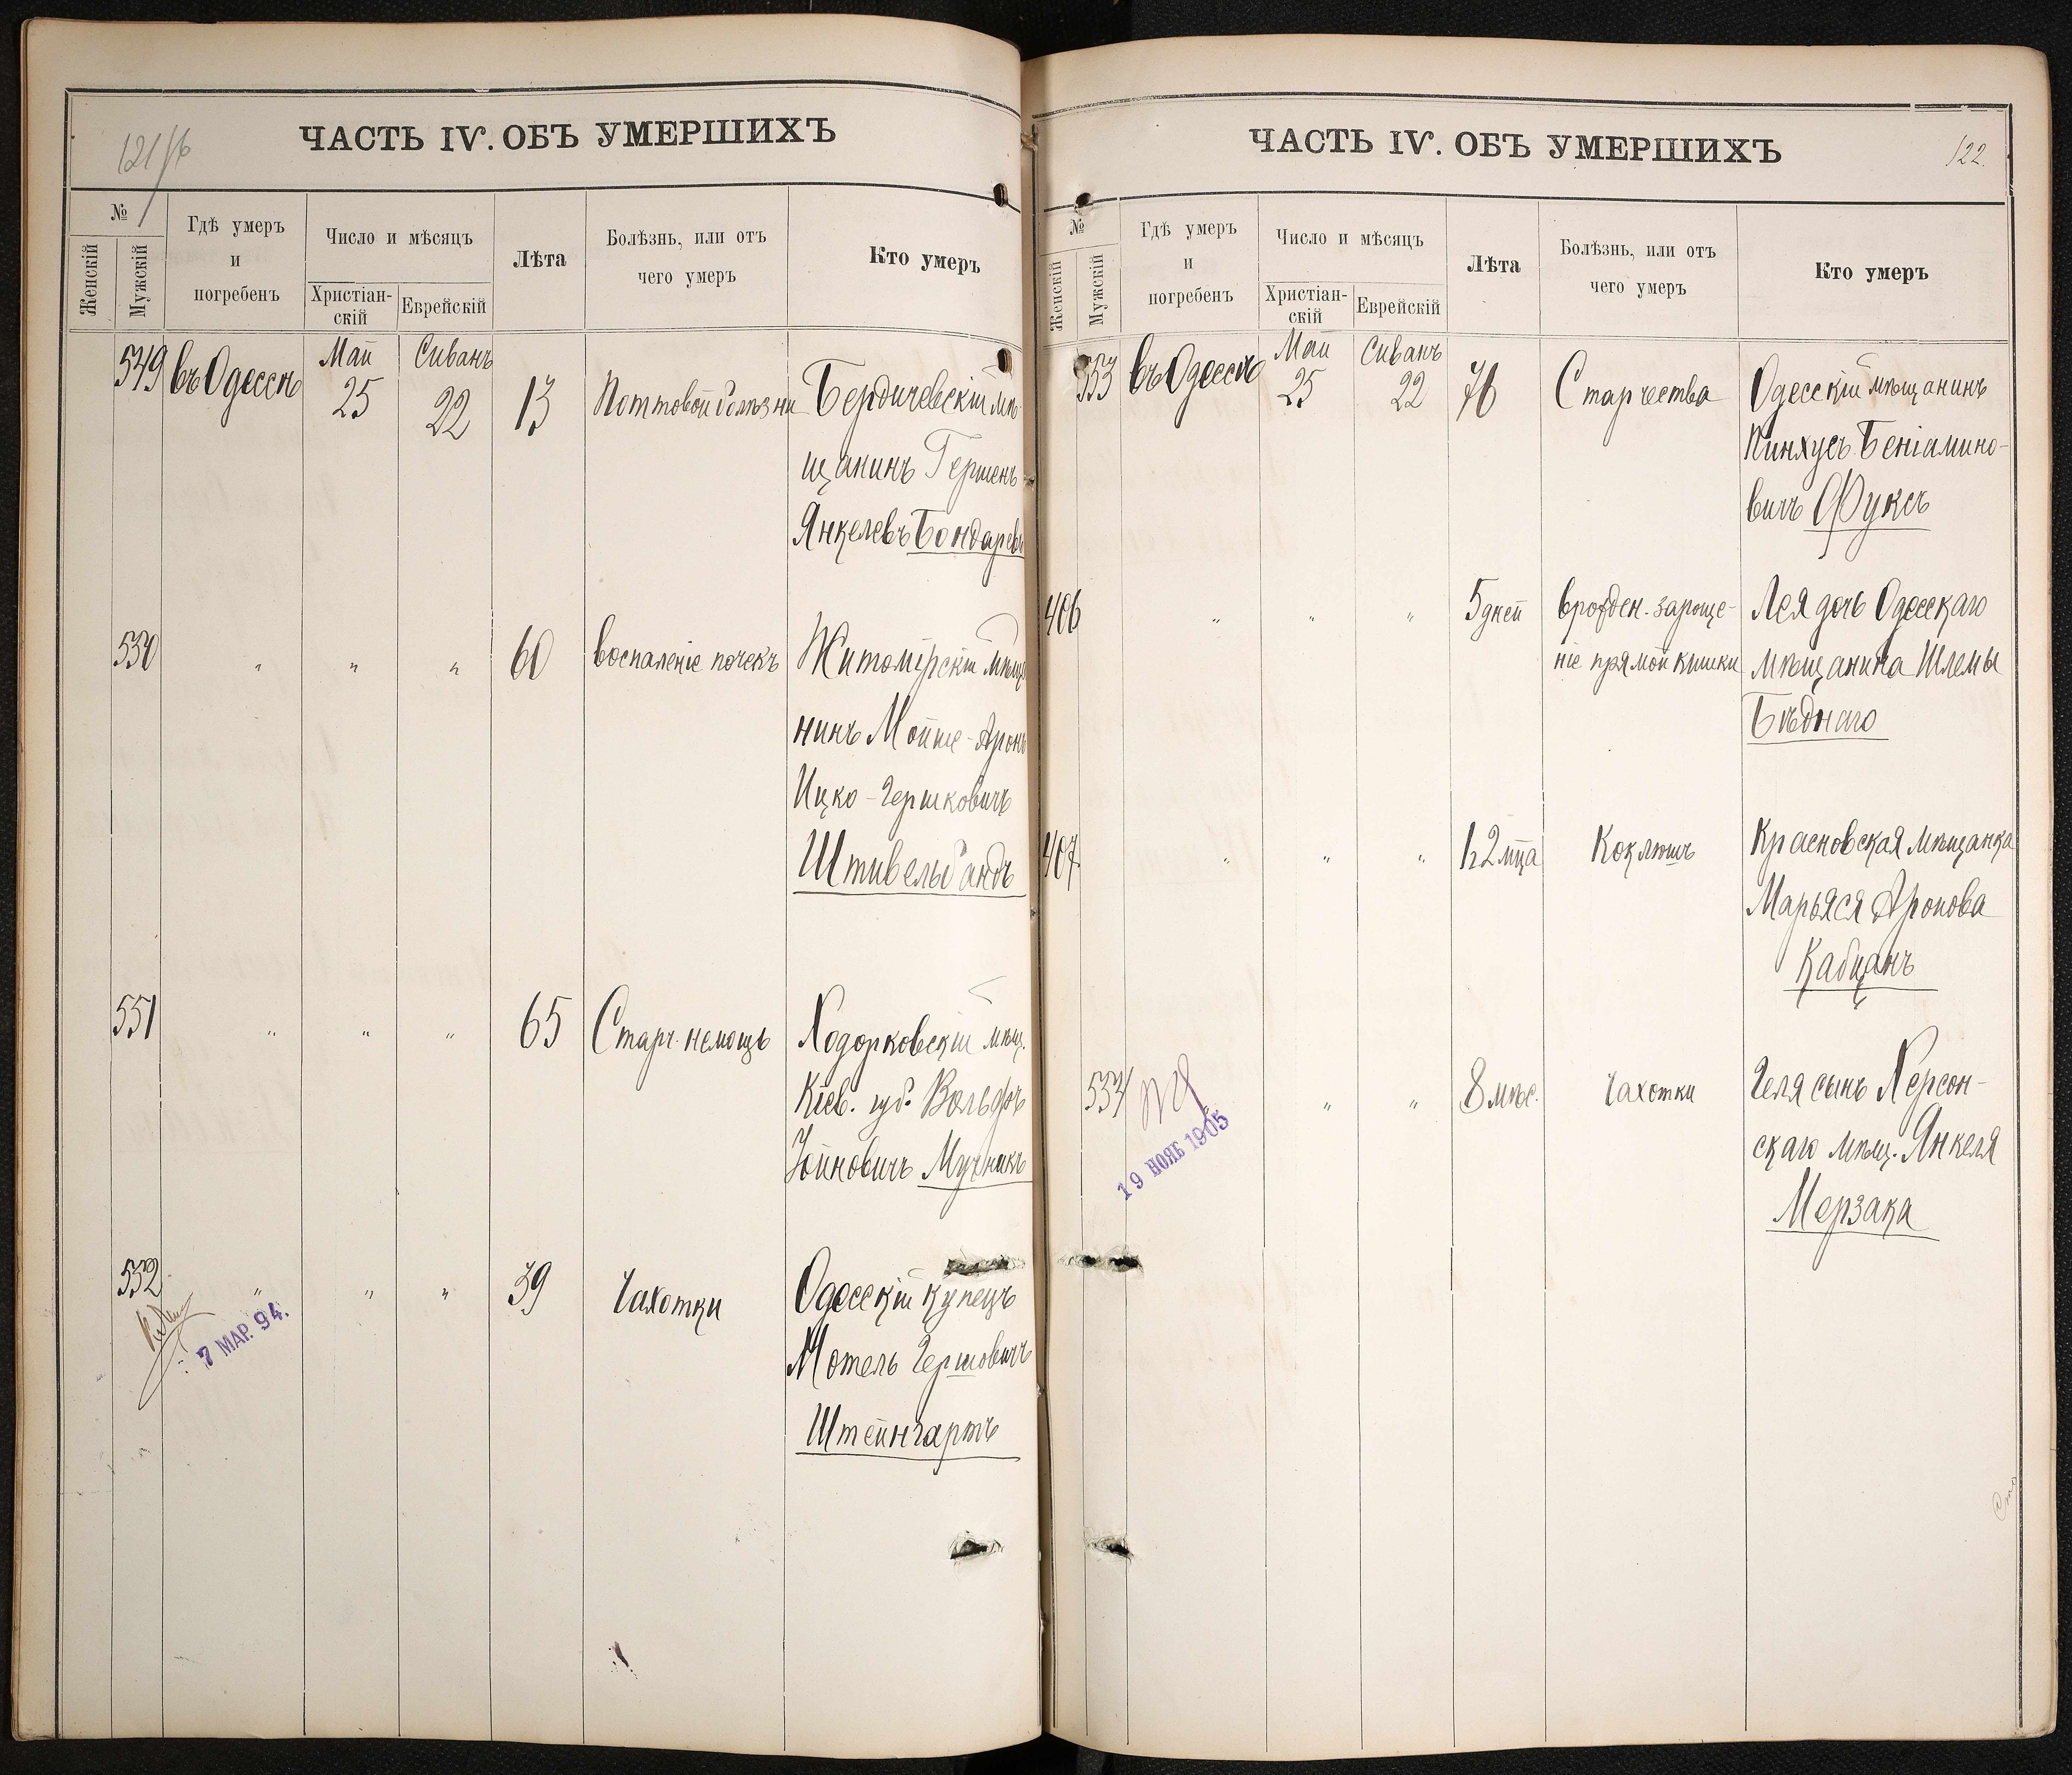 121/16
ЧАСТЬ IV. ОБЪ УМЕРШИХЪ
№
Женскій
Мужскій
Гдѣ умеръ
и
погребенъ
Число и мѣсяцъ
Христіан-
скій
Еврейскій
Лѣта
Болѣзнь, или отъ
чего умеръ
Кто умеръ
549 въ Одессѣ Май 25 Сиванъ 22 13 Бердичевскій мѣ-
щанинъ Гершенъ
Янкелевъ Бондаревъ
550 " " " 60 Воспаленіе почекъ Житомірскій мѣща
нинъ Мойше-Аронъ
Ицко-Гершковичъ
Штивельбандъ
551 " " " 65 Старч. немощь Ходорковскій мѣщ.
Кіев. губ. Вольфъ
Іойновичъ Мучникъ
552 " " " 39 Чахотки Одесскій купецъ
Мотель Гершовичъ
Штейнгартъ
7 МАР. 94.
ЧАСТЬ IV. ОБЪ УМЕРШИХЪ
122.
№
Женскій
Мужскій
Гдѣ умеръ
и
погребенъ
Число и мѣсяцъ
Христіан-
скій
Еврейскій
Лѣта
Болѣзнь, или отъ
чего умеръ
Кто умеръ
553 въ Одессѣ Май 25 Сиванъ 22 76 Старчества Одесскій мѣщанинъ
Пинхусъ Беніамино-
вичъ Фуксъ
406 " " " 5 дней врожден. зароще- Лея дочь Одесскаго
ніе прямой кишки мѣщанина Шлемы
Бѣднаго
407 " " " 1½ мца Коклюшъ Красновская мѣщанка
Марьяся Аронова
Кабцанъ
554 " " " 8 мѣс. Чахотки Геля сынъ Херсон-
скаго мѣщ. Янкеля
Мерзака
19 НОЯБ 1905